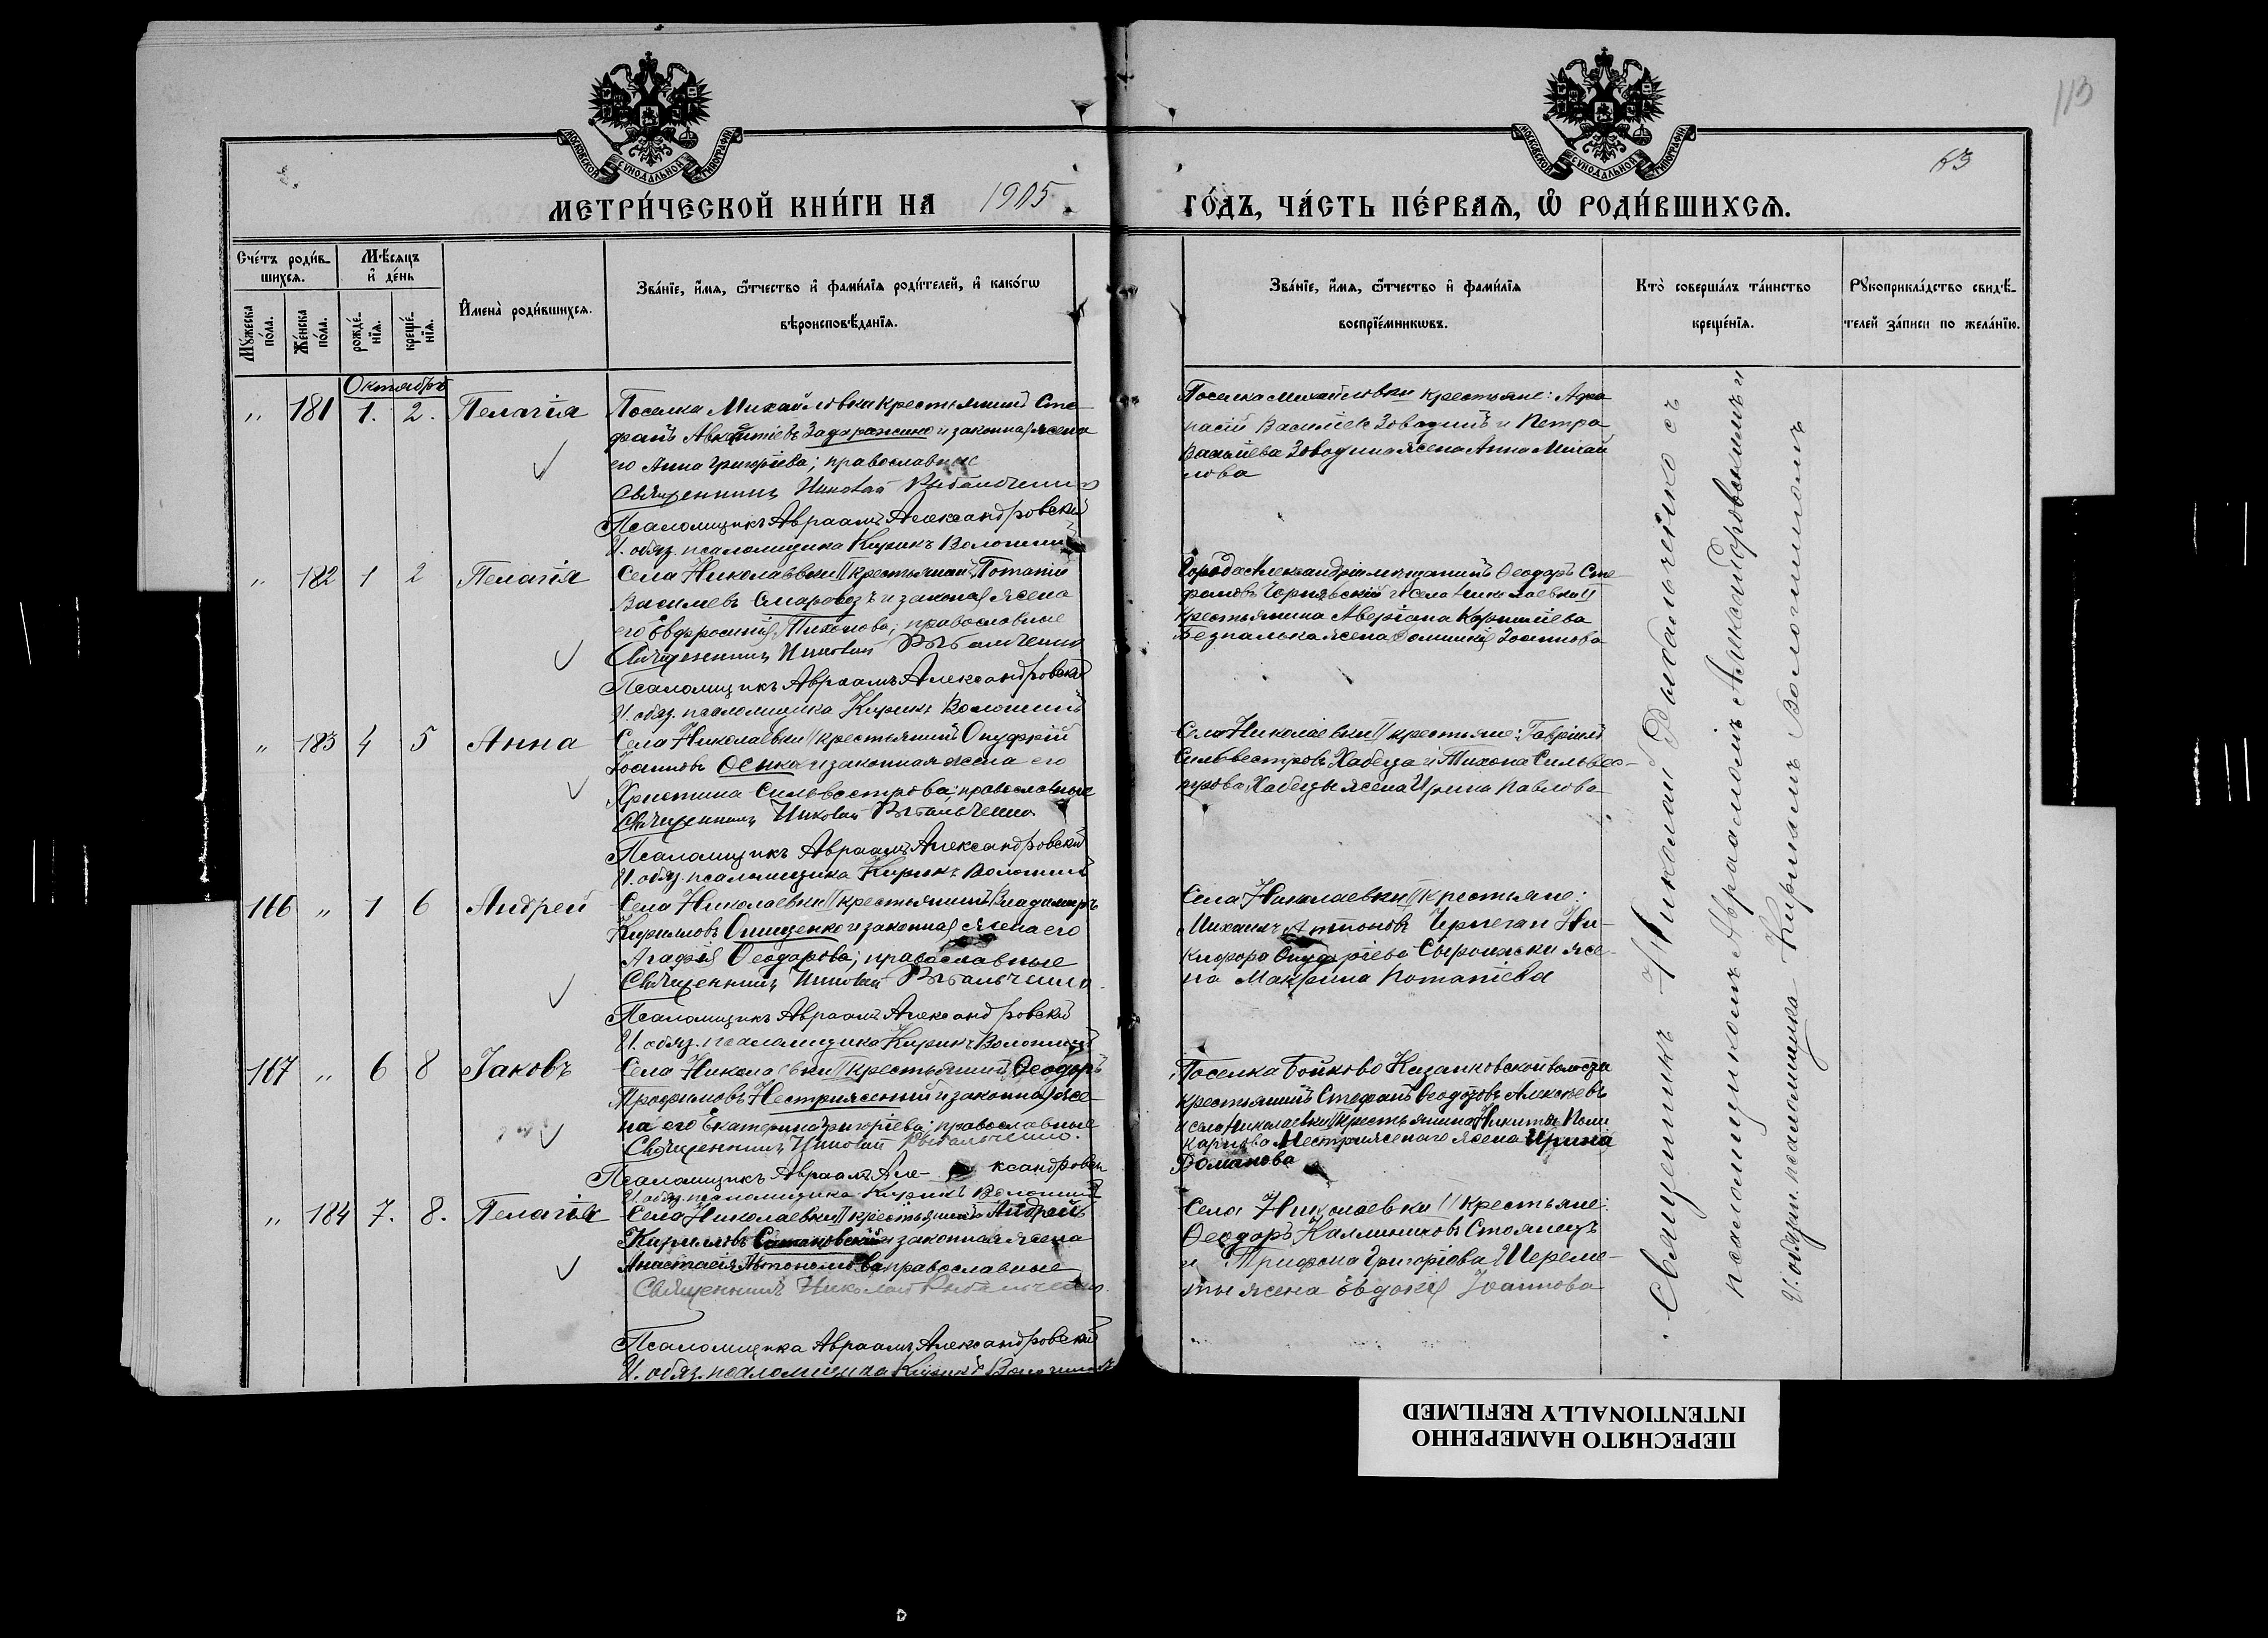 113
63
МОСКОВСКОЙ СѴНОДАЛЬНОЙ ТИПОГРАФІИ
МОСКОВСКОЙ СѴНОДАЛЬНОЙ ТИПОГРАФІИ
МЕТРИ́ЧЕСКОЙ КНИ́ГИ НА 1905
ГО́ДЪ, ЧА́СТЬ ПЕ́РВАѦ, Ѽ РОДИ́ВШИХСѦ.
Сче́тъ роди́в-
шихсѧ.
Мꙋ́жеска
по́ла.
Же́нска
по́ла.
Мѣ́сѧцъ
и҆ де́нь
рожде́-
нїѧ.
креще́-
нїѧ.
И҆мена̀ роди́вшихсѧ.
Зва́нїе, и҆́мѧ, ѻ҆́тчество и҆ фами́лїѧ роди́телей, и҆ како́гѡ
вѣроисповѣ́данїѧ.
Зва́нїе, и҆́мѧ, ѻ҆́тчество и҆ фами́лїѧ
воспрїе́мникѡвъ.
Кто̀ соверша́лъ та́инство
креще́нїѧ.
Рꙋкоприкла́дство свидѣ́-
телей за́писи по жела́нїю.
Октябрь
„ 181 1. 2. Пелагія
Поселка Михайловки крестьянинъ Сте-
фанъ Авксентіевъ Задорожно и законная жена
его Анна Григоріева; православные
Священникъ Николай Рыбальченко
Псаломщикъ Авраамъ Александровскій
И. обяз. псаломщика Кирикъ Волошинъ
Поселка Михайловки крестьяне: Афа-
насій Васильевъ Заводинъ и Петра
Васильева Заводина жена Анна Михай
лова
„ 182 1 2 Пелагія
Села Николаевки II крестьянинъ Потапій
Васильевъ Скаровозъ и законная жена
его Евфросинія Тихонова; православные
Священникъ Николай Рыбальченко
Псаломщикъ Авраамъ Александровскій
И. обяз. псаломщика Кирикъ Волошинъ
Города Александріи мѣщанинъ Ѳеодоръ Сте-
фановъ Чернявскій и села Николаевки II
крестьянина Аверіана Корниліева
жена Домникія Іоаннова
„ 183 4 5 Анна
Села Николаевки II крестьянинъ Онуфрій
Іоанновъ Оенко и законная жена его
Христина Сильвестрова; православные
Священникъ Николай Рыбальченко
Псаломщикъ Авраамъ Александровскій
И. обяз. псаломщика Кирикъ Волошинъ
Села Николаевки II крестьяне: Гавріилъ
Сильвестровъ Хабеца и Тихона Сильвес-
трова Хабецы жена Ирина Павлова
166 „ 1 6 Андрей
Села Николаевки II крестьянинъ Владимиръ
Кирилловъ Онищенко и законная жена его
Агафія Ѳеодорова; православные
Священникъ Николай Рыбальченко
Псаломщикъ Авраамъ Александровскій
И. обяз. псаломщика Кирикъ Волошинъ
Села Николаевки II крестьяне:
Михаилъ Антоновъ Чернега и Ни-
кифора Онуфріева жe-
на Макрина Потапіева
167 „ 6 8 Іаковъ
Села Николаевки II крестьянинъ Ѳеодоръ
Трофимовъ Нестрижений и законная же-
на его Екатерина Григоріева; православные
Священникъ Николай Рыбальченко.
Псаломщикъ Авраамъ Але- ксандровск
И. обяз. псаломщика Кирикъ Волошинъ
Поселка Бойково Казанковской волости
крестьянинъ Стефанъ Ѳеодотовъ Алексѣевъ
и села Николаевки II крестьянина Никиты Поли
карпова Нестриженаго жена Ирина
Романова
„ 184 7. 8. Пелагія
Села Николаевки II крестьянинъ Андрей
Кирилловъ и законная жена
Анастасія Автономова, православные
Священникъ Николай Рыбальченко
Псаломщика Авраамъ Александровскій
И. обяз. псаломщика Кирикъ Волошинъ
Села Николаевки II крестьяне:
Ѳеодоръ Каллиниковъ Стоянецъ
и Трифона Григоріева Шереме-
ты жена Евдокія Іоаннова
Священникъ Николай Рыбальченко съ
псаломщикомъ Авраамомъ Александровскимъ и
И. обязан. псаломщика Кирикомъ Волошинымъ
ПЕРЕСНЯТО НАМЕРЕННО
INTENTIONALLY REFILMED